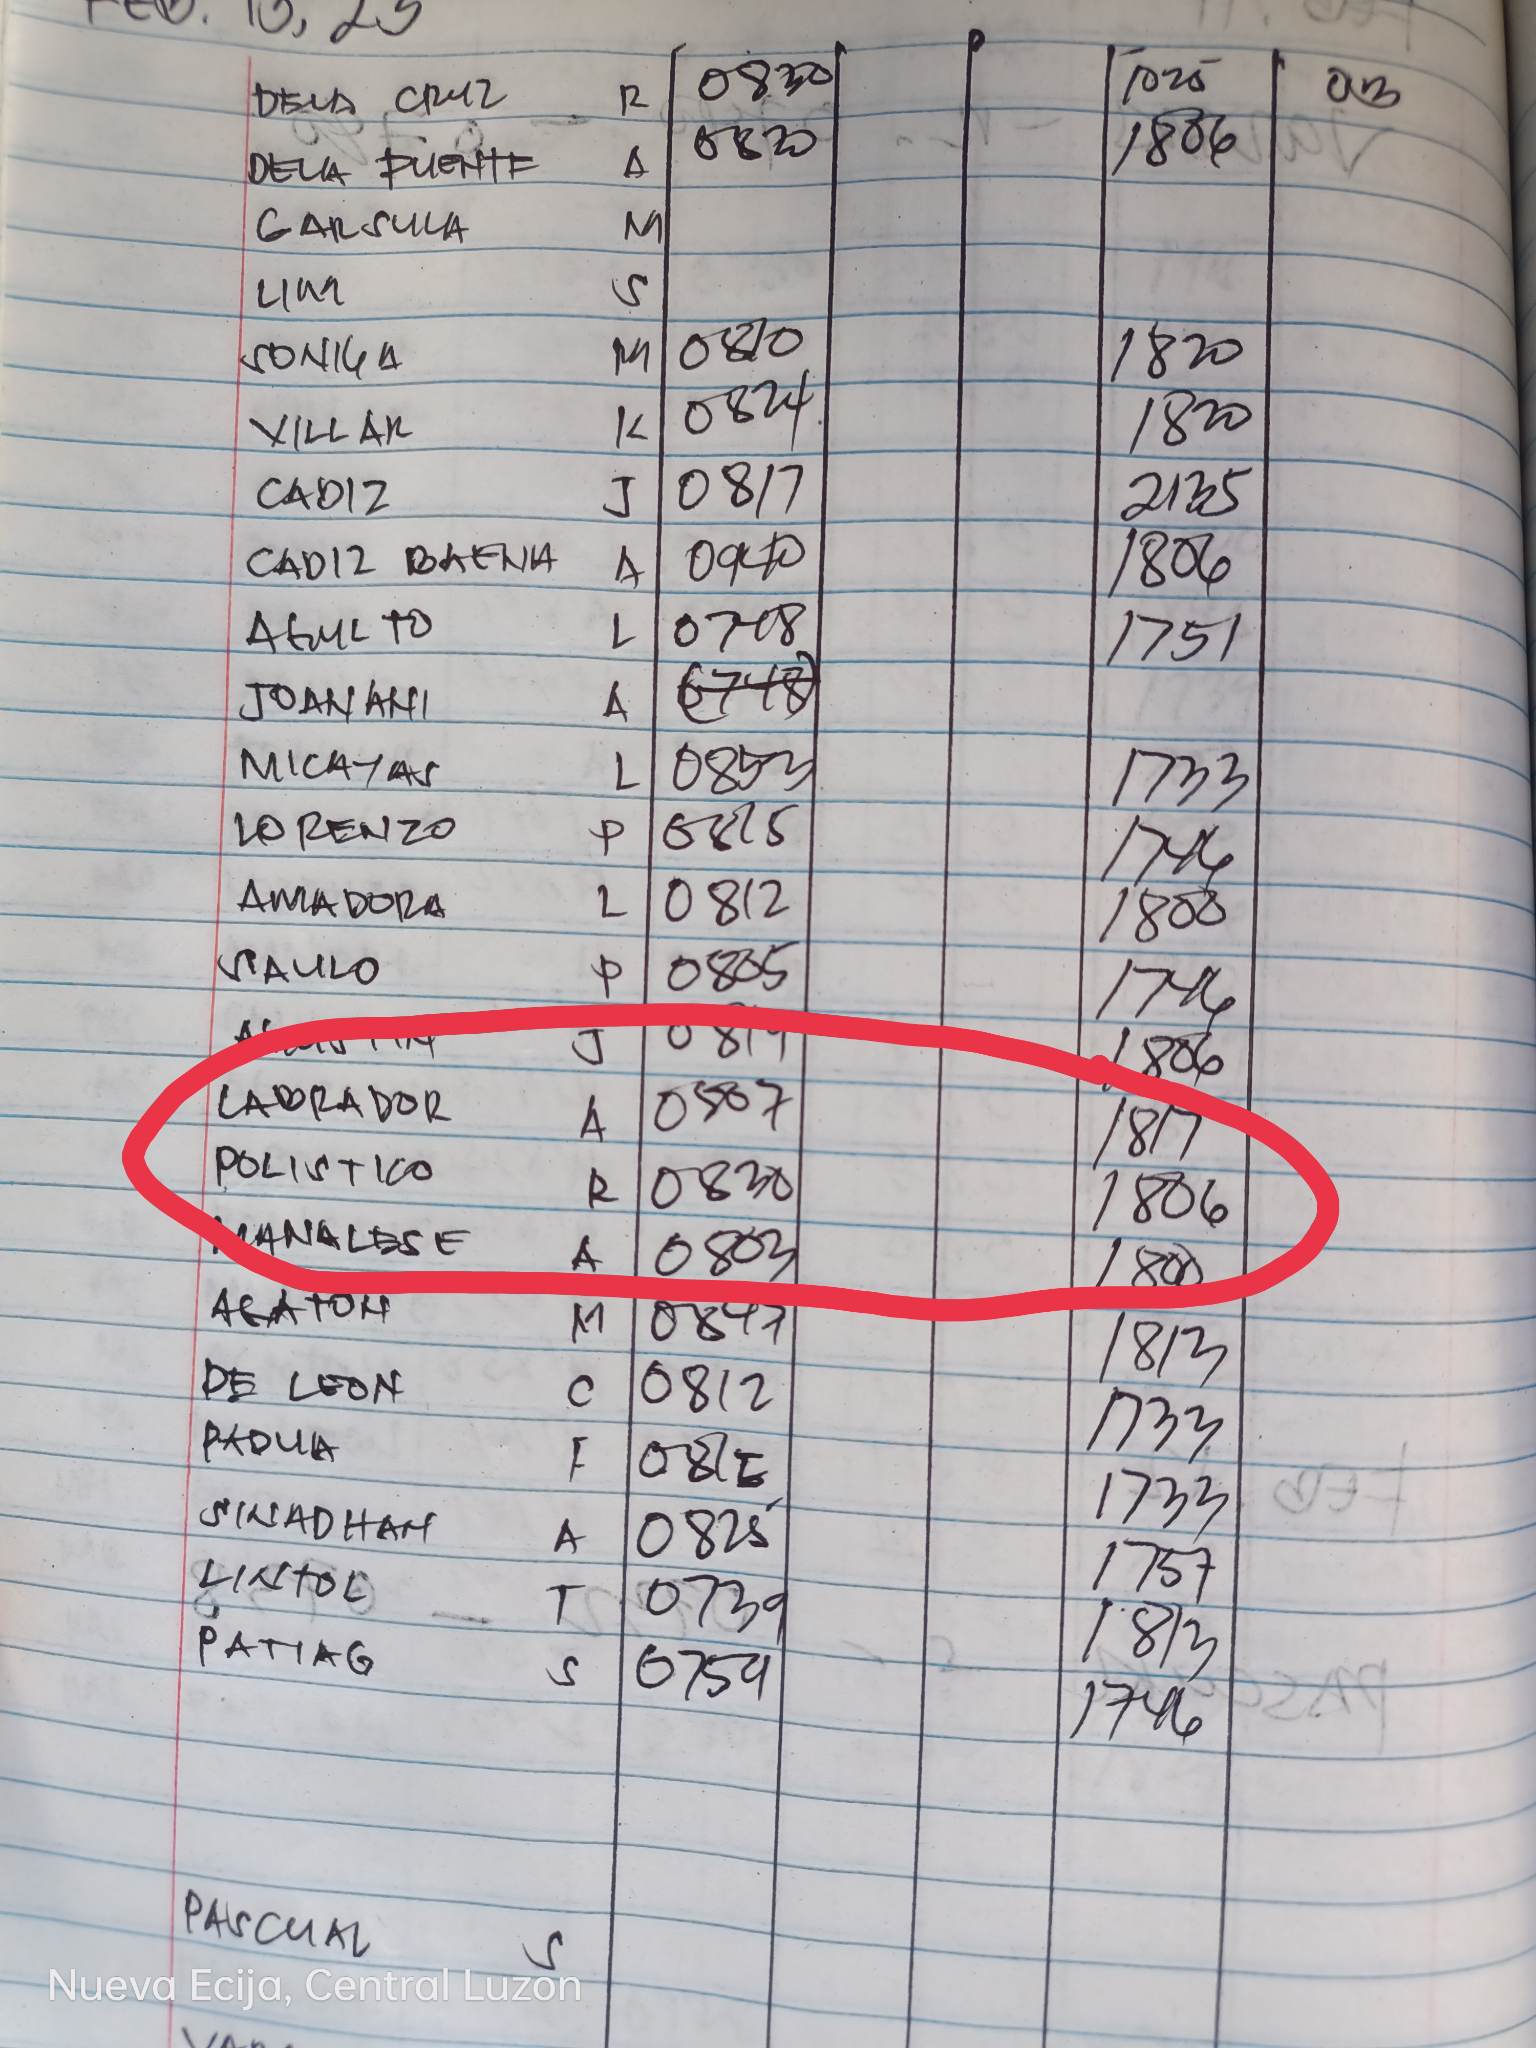 FEB. 10, 23
DELA CRUZ R 0830 1025 OB
DELA PUENTE A 0820 1806
GARSULA M
LIM S
SONIGA M 0810 1820
VILLAR K 0824 1820
CADIZ J 0817 2135
CADIZ BAENA A 0940 1806
AGULTO L 0748 1751
JOANANI A 0748
MICAYAS L 0853 1733
LORENZO P 0815 1746
AMADORA L 0812 1800
SAULO P 0805 1746
AGUSTIN J 0819 1806
LABRADOR A 0807 1817
POLISTICO R 0830 1806
MANALESE A 0803 1800
AGATON M 0847 1813
DE LEON C 0812 1733
PADUA F 0815 1733
SINADHAN A 0825 1757
LINTOL T 0739 1813
PATIAG S 0759 1746
PASCUAL S
Nueva Ecija, Central Luzon